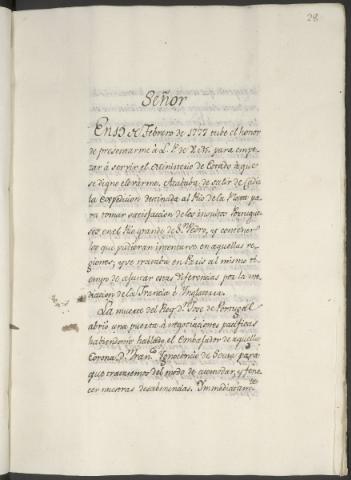 28
Señor
En 19 de Febrero de 1777 tube el honor
de presentarme à L. P. de V. M. para empe-
zar à servir el Ministerio de Estado à que
se digno elevarme. Acababa de salir de Cadiz
la Expedicion destinada al Rio de la Plata pa-
ra tomar satisfaccion de los insultos Portugue-
ses, en el Rio grande de Sn. Pedro, y contener
los que pudieran intentarse en aquellas re-
giones, y se trataba en Paris al mismo ti-
empo de ajustar estas diferencias por la me-
diacion de la Francia è Inglaterra.
La muerte del Rey Dn. Jose de Portugal
abrió una puerta à negociaciones pacificas
habiendome hablado el Embajador de aquella
Corona Dn. Franco. Ynocencio de Souza para
que tratasemos del modo de acomodar, y fene-
cer nuestras desabenencias. Ymmediatamte.